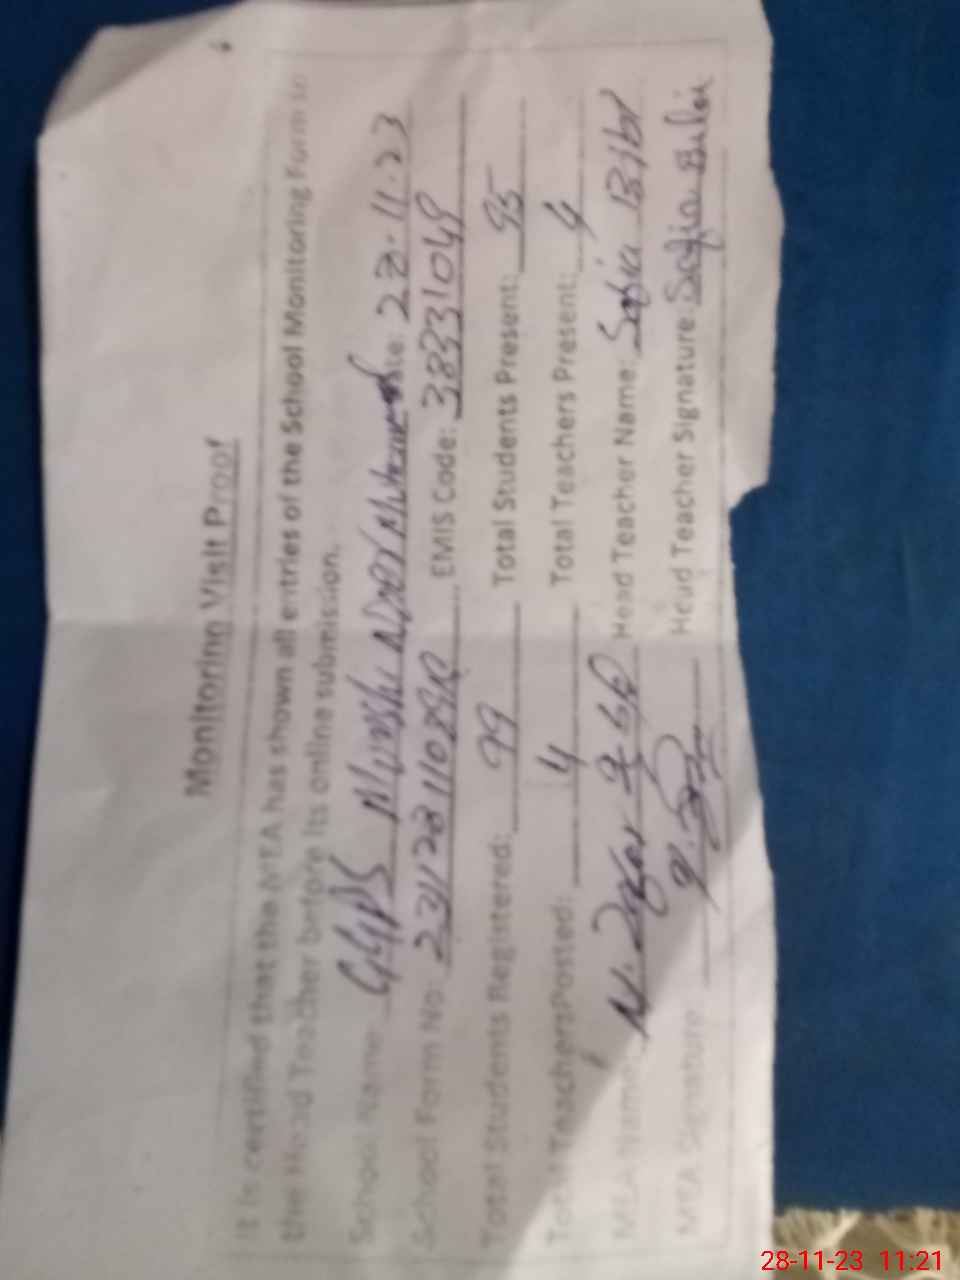 Monitoring Visit Proof
It is certified that the MEA has shown all entries of the School Monitoring Form to
the Head Teacher before its online submission.
School Name: GGPS Date: 28.11.23
School Form No: EMIS Code: 38331049
Total Students Registered: 99 Total Students Present: 95
Total Teachers Posted: 4 Total Teachers Present: 4
MEA Name: Head Teacher Name: Safia Bibi
MEA Signature Head Teacher Signature: Safia Bibi
28-11-23 11:21